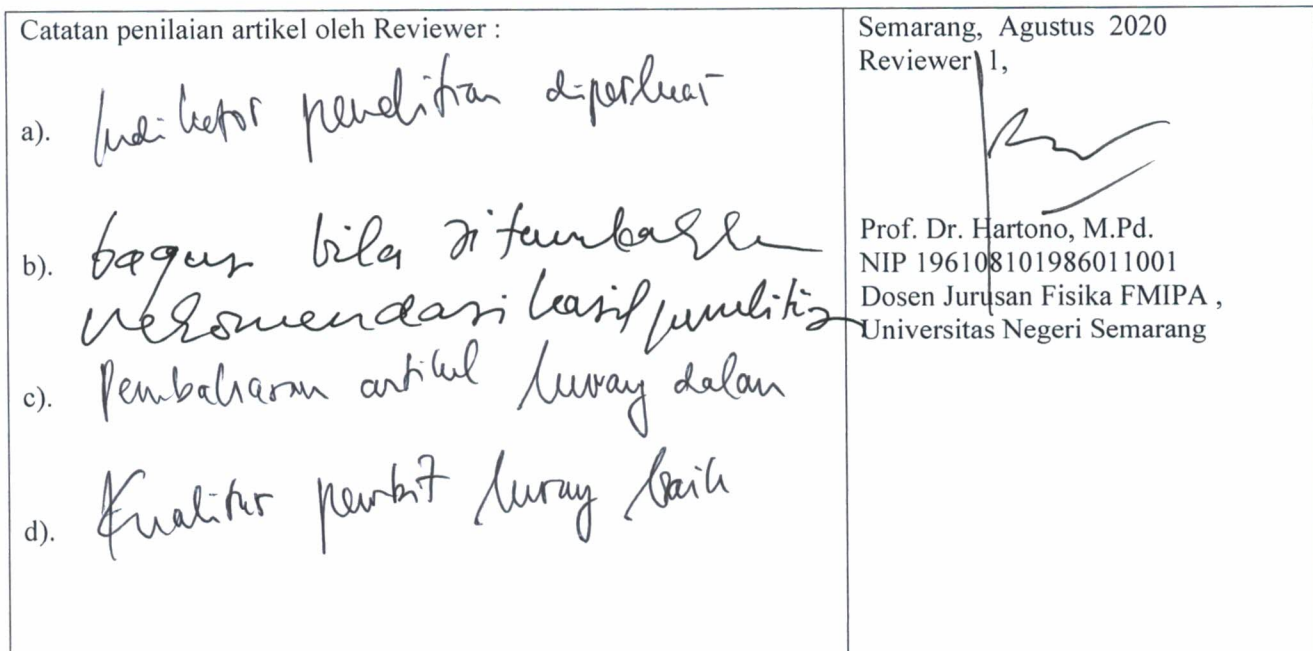 Catatan penilaian artikel oleh Reviewer :
a). Indikator penelitian diperluas
b). bagus bila ditambahkan
rekomendasi hasil penelitian
c). Pembahasan artikel kurang dalam
d). Kualitas penerbit kurang baik
Semarang, Agustus 2020
Reviewer 1,
Prof. Dr. Hartono, M.Pd.
NIP 196108101986011001
Dosen Jurusan Fisika FMIPA ,
Universitas Negeri Semarang